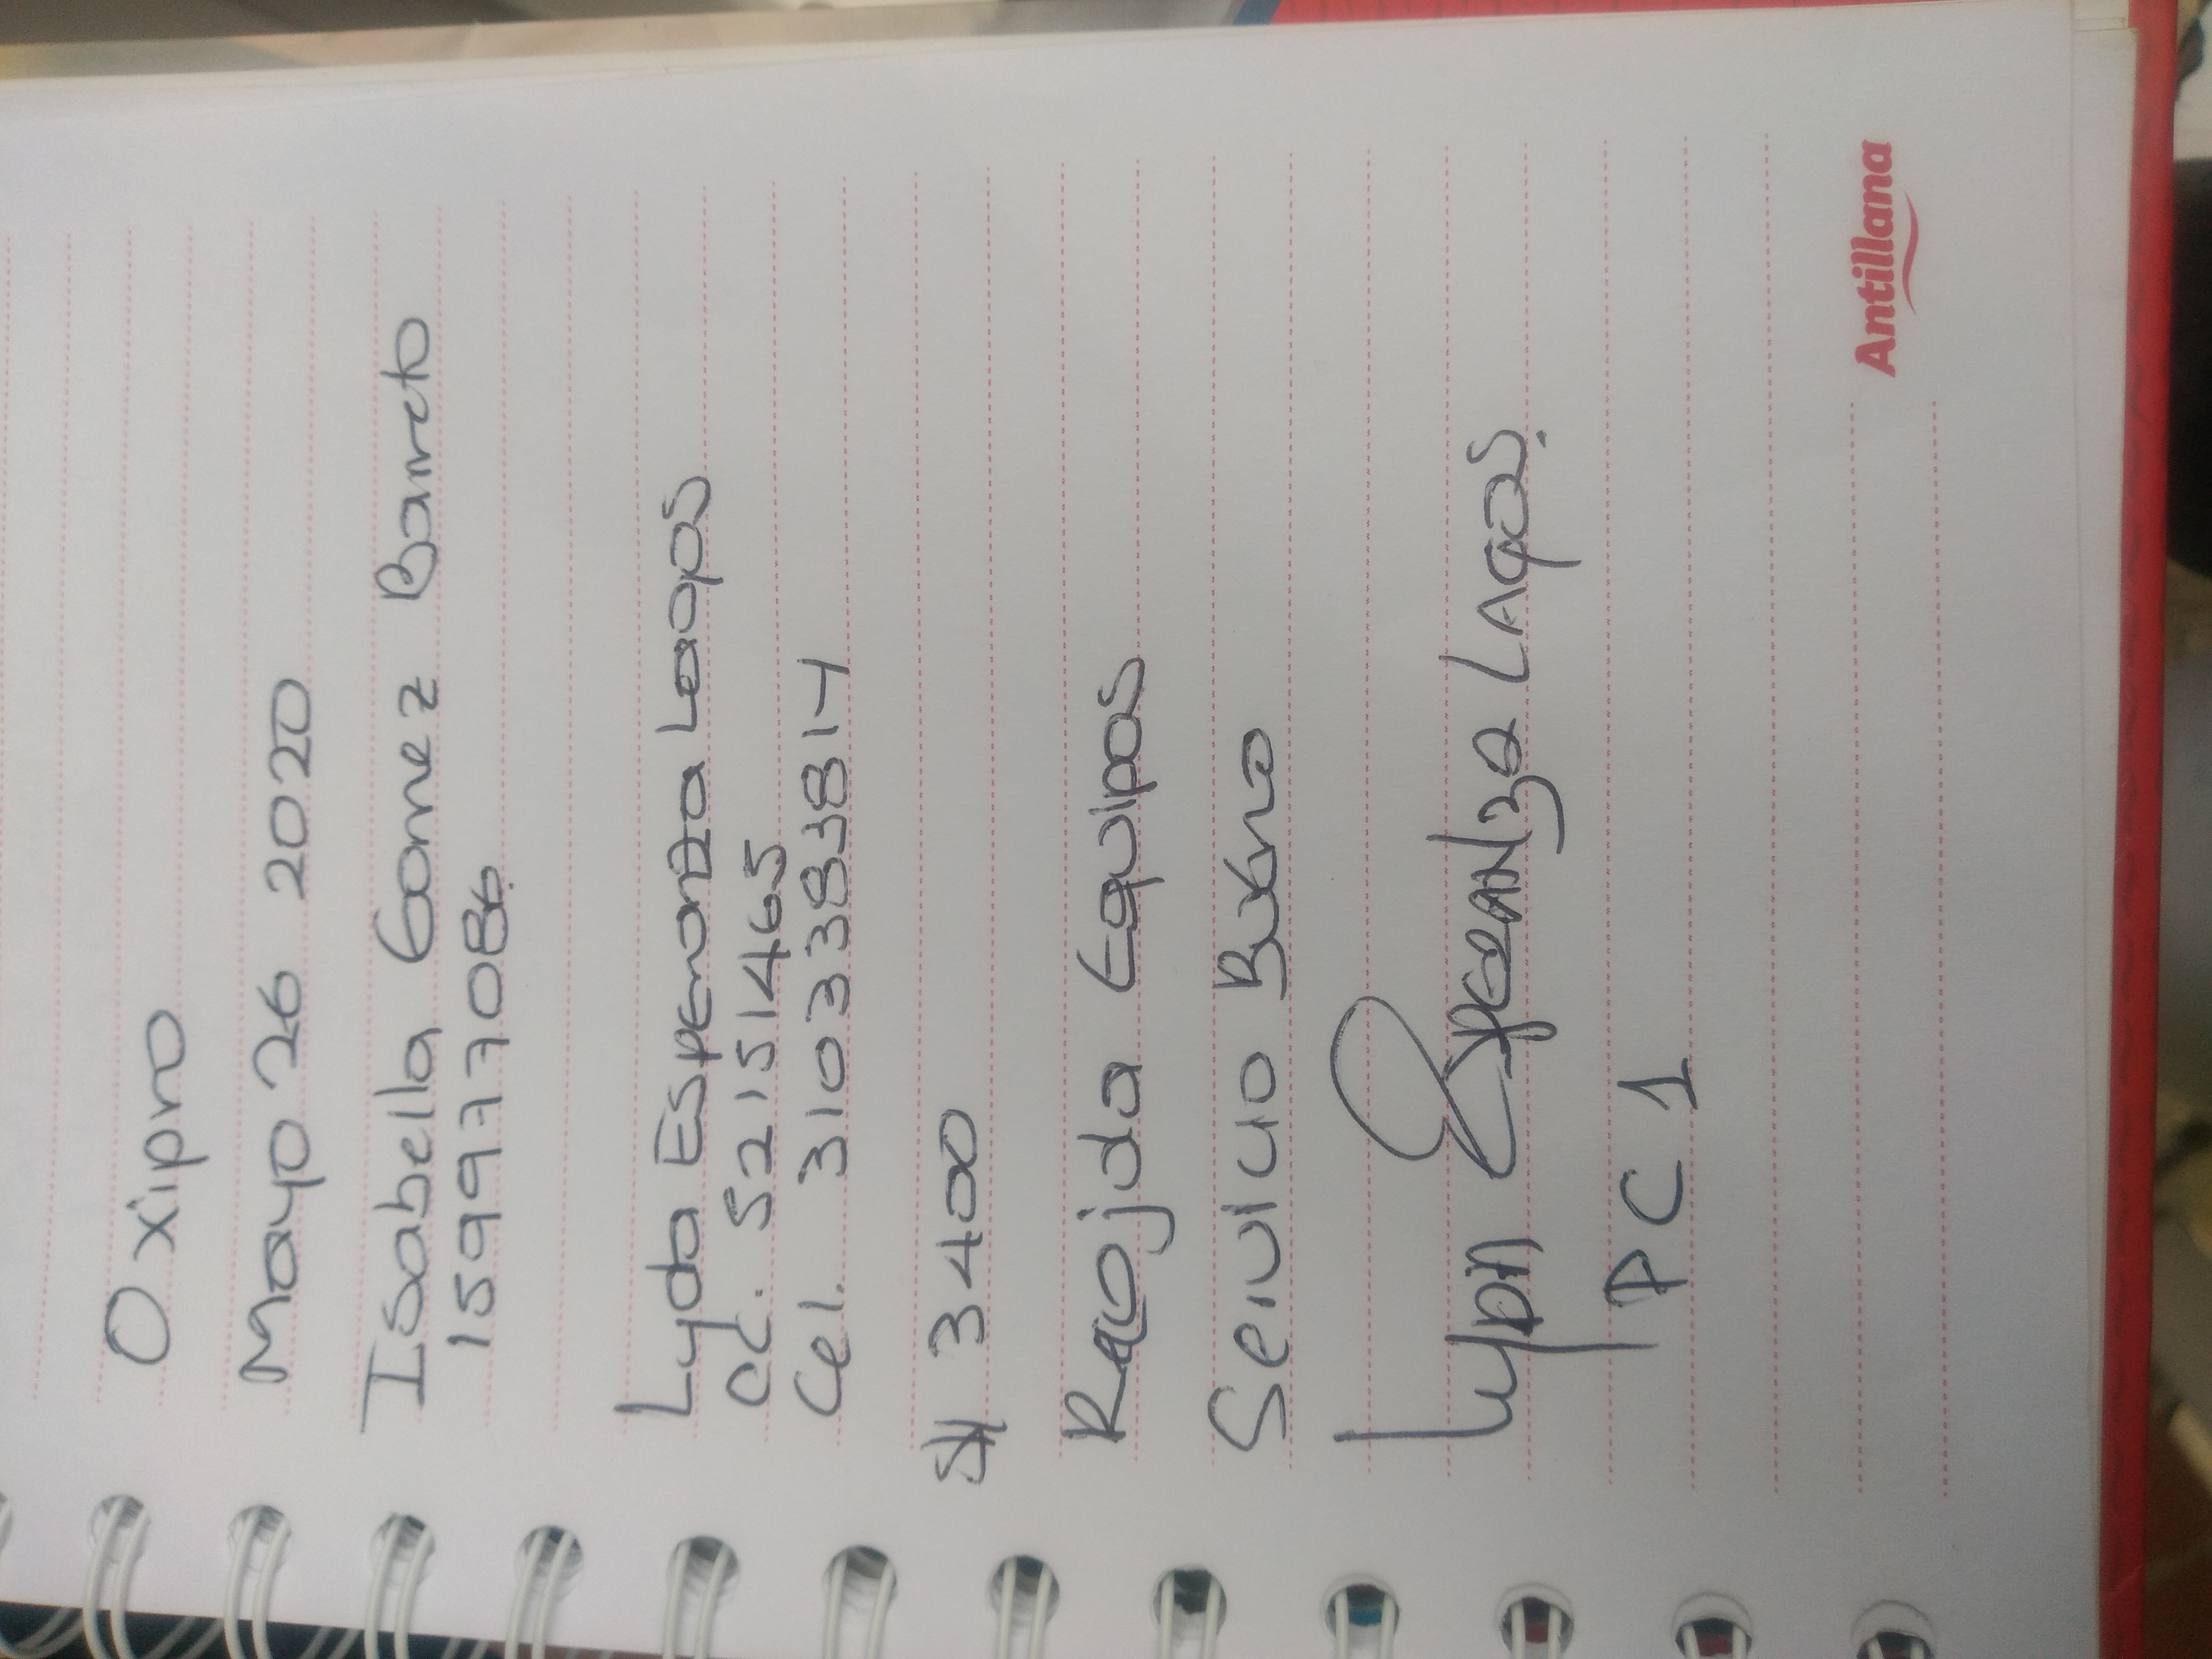 Oxipro
Mayo 26 2020
Isabella Gomez Barreto
1599977086
Lyda Esperanza Lagos
CC. 52151465
Cel. 3103383814
SH 3400
Recojida Equipos
Servicio Bueno
Lyda Esperanza Lagos.
PC 1
Antillana